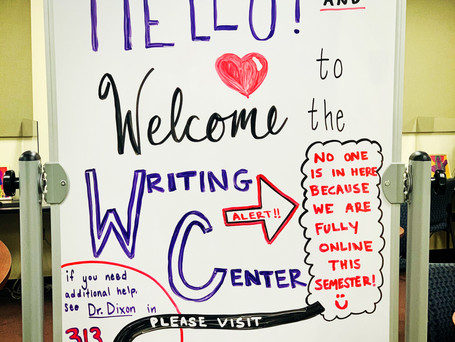 HELLO!
AND
Welcome
to
the
WRITING
CENTER
ALERT!!
NO ONE
IS IN HERE
BECAUSE
WE ARE
FULLY
ONLINE
THIS
SEMESTER!
if you need
additional help,
see Dr. Dixon in
313
PLEASE VISIT